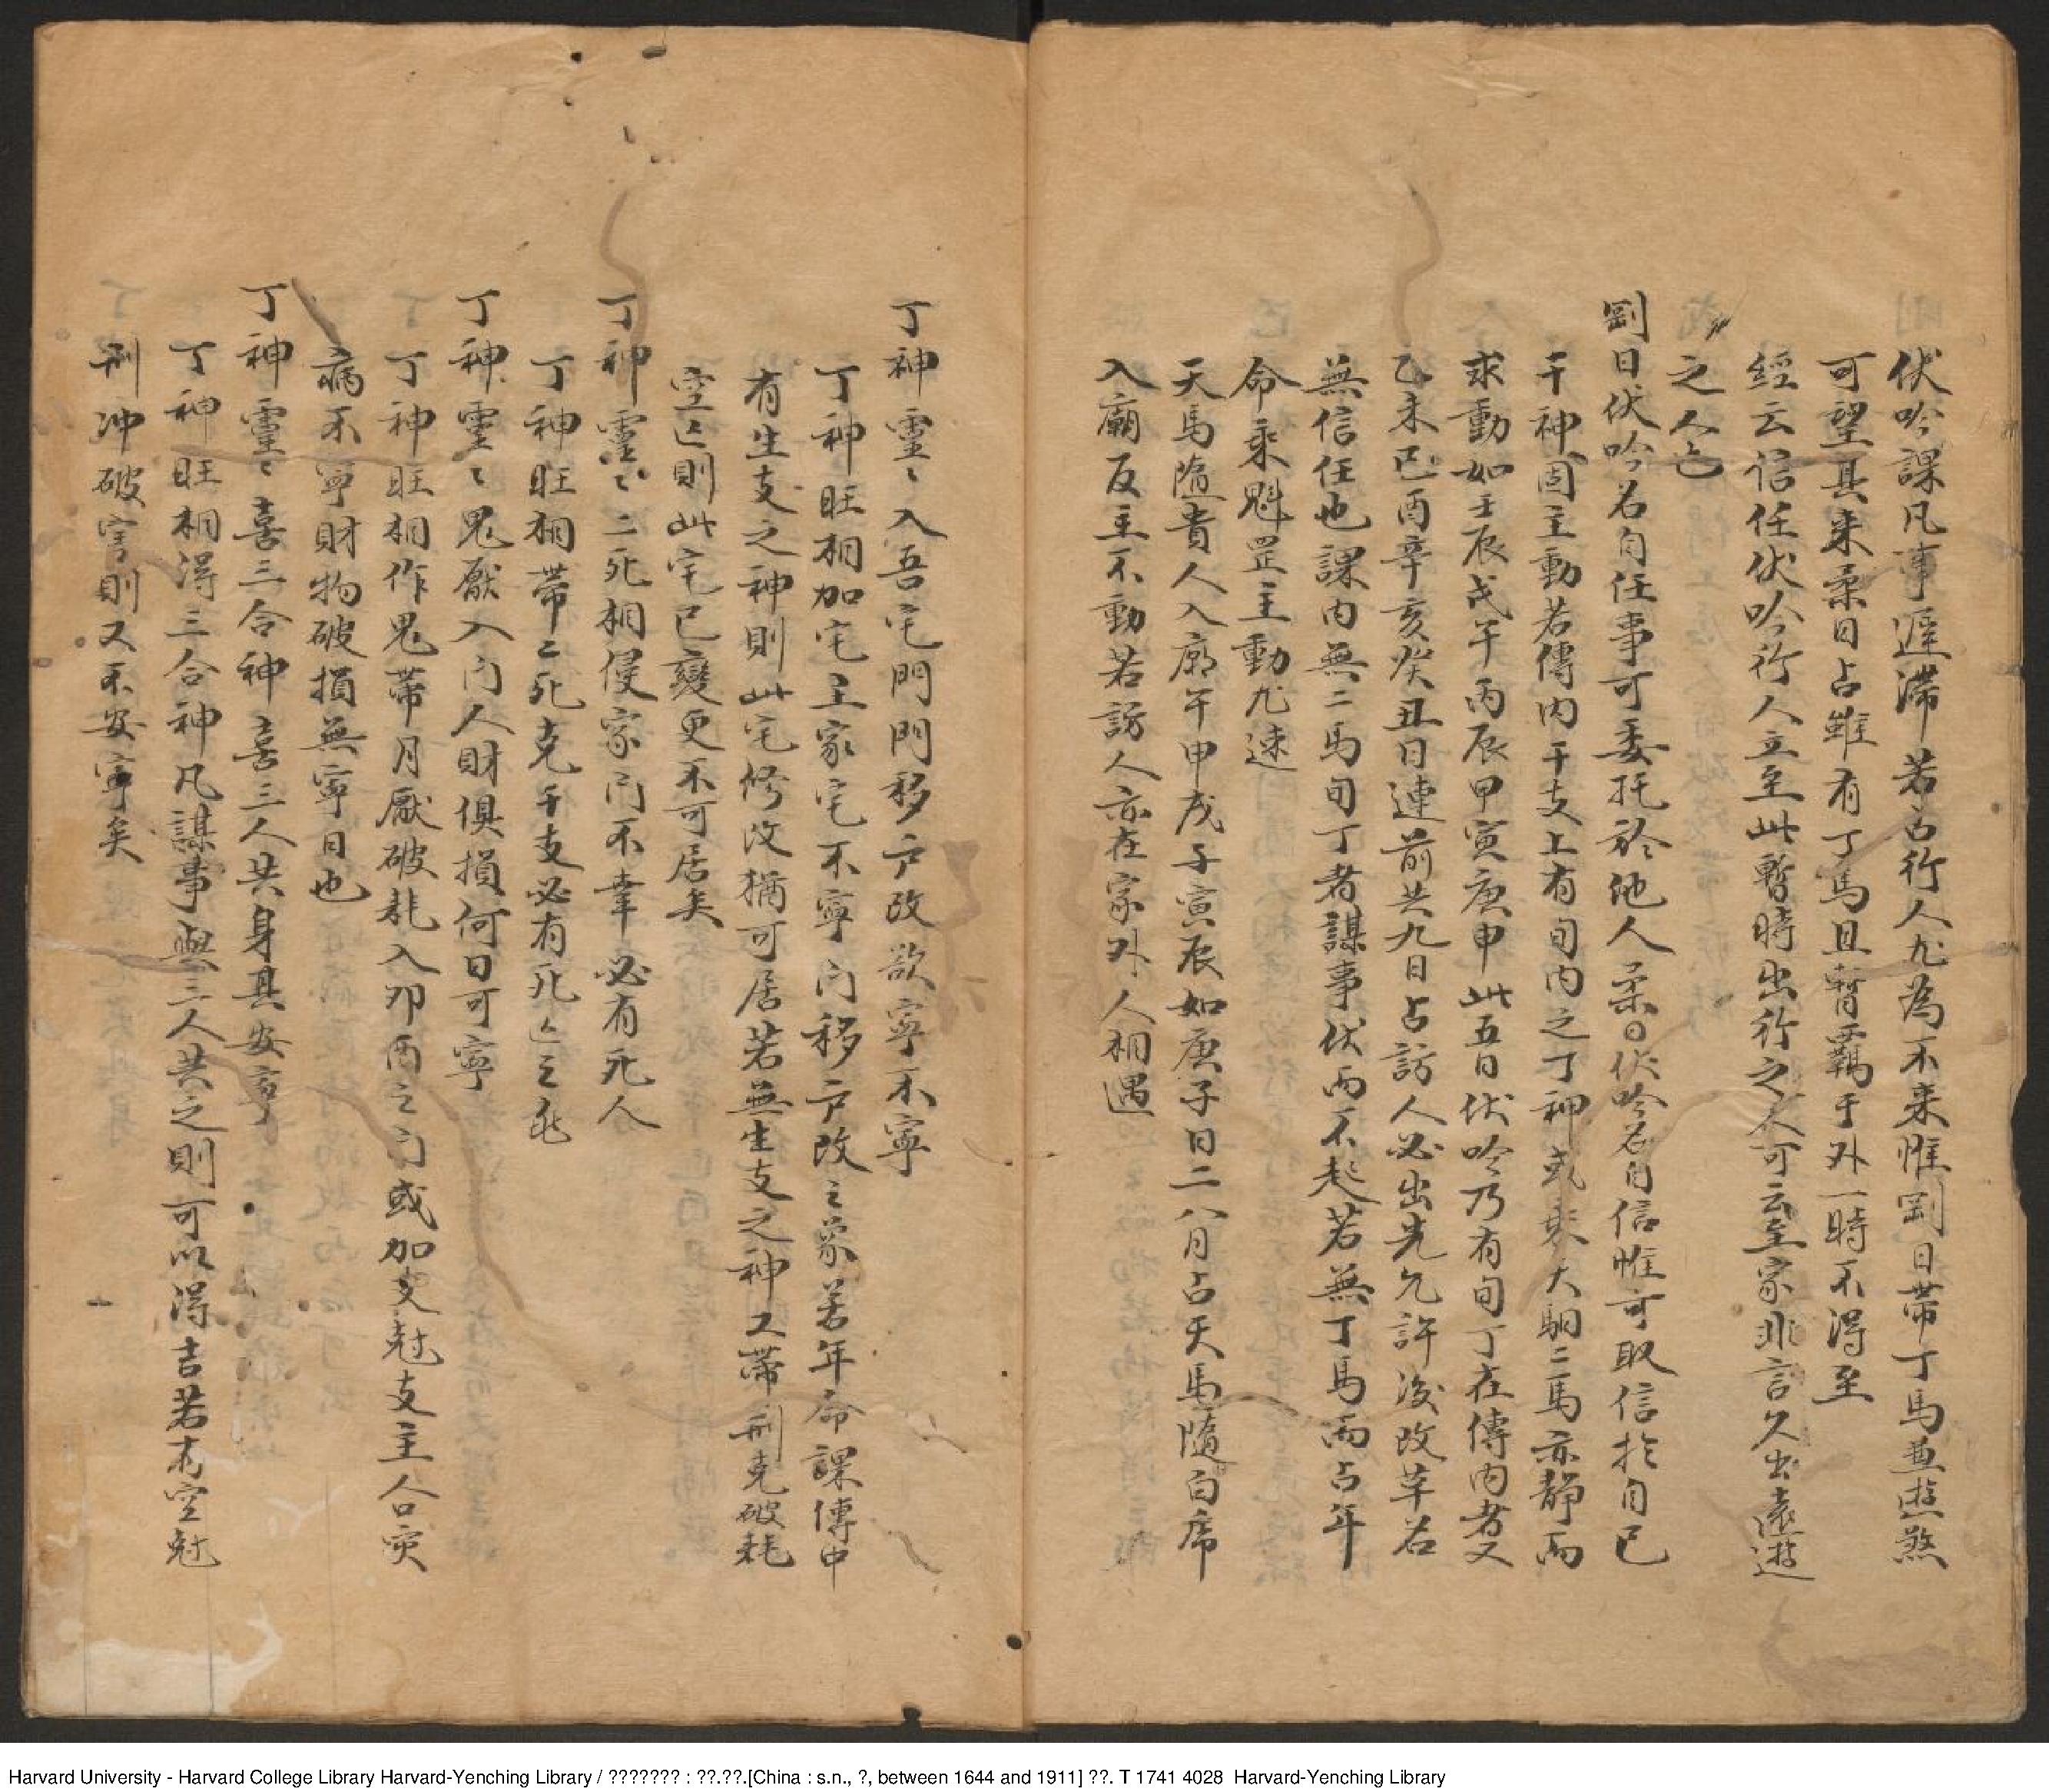 伏吟課凡事遲滯若占行人尤為不來惟剛日帶丁馬並遊煞
可望其来柔日占雖有丁馬且暫羈于外一時不得至
經云信任伏吟行人立至此暫時出行之人可云至家非言久出遠遊
之人也
剛日伏吟名自任事可委托於他人柔日伏吟名自信惟可取信於自己
干神固主動若傳內干支上有旬內之丁神或乘天驛二馬亦静而
求動如壬辰戊午丙辰甲寅庚申此五日伏吟乃有旬丁在傳內者又
乙未己酉辛亥癸丑日連前共九日占訪人必出先允許後改革若
無信任也課內無二馬旬丁者謀事伏而不起若無丁馬而占年
命乘魁罡主動尤速
天馬隨貴人入廟午申戌子寅辰如庚子日二八月占天馬隨白虎
入廟反主不動若訪人亦在家外人相遇
丁神靈〻入吾宅門門移户改欲寧不寧
丁神旺相加宅主家宅不寧门移户改之象若年命課傳中
有生支之神則此宅修改猶可居若無生支之神又帶刑克破耗
空亡則此宅已變更不可居矣
丁神靈〻二死相侵家门不幸必有死人
丁神旺相帶二死克干支必有死亡之
丁神靈〻鬼厭入门人財俱損何日可寧
丁神旺相作鬼帶月厭破耗入卯酉之门或加支尅支主人口灾
病不寧財物破損無寧日也
丁神靈〻喜三合神喜三人共身其安亨
丁神旺相得三合神凡謀事與三人共之則可以得吉若有空尅
刑冲破害則又不安寧矣
Harvard University - Harvard College Library Harvard-Yenching Library / ??????? : ??.??.[China : s.n., ?, between 1644 and 1911] ??. T 1741 4028 Harvard-Yenching Library